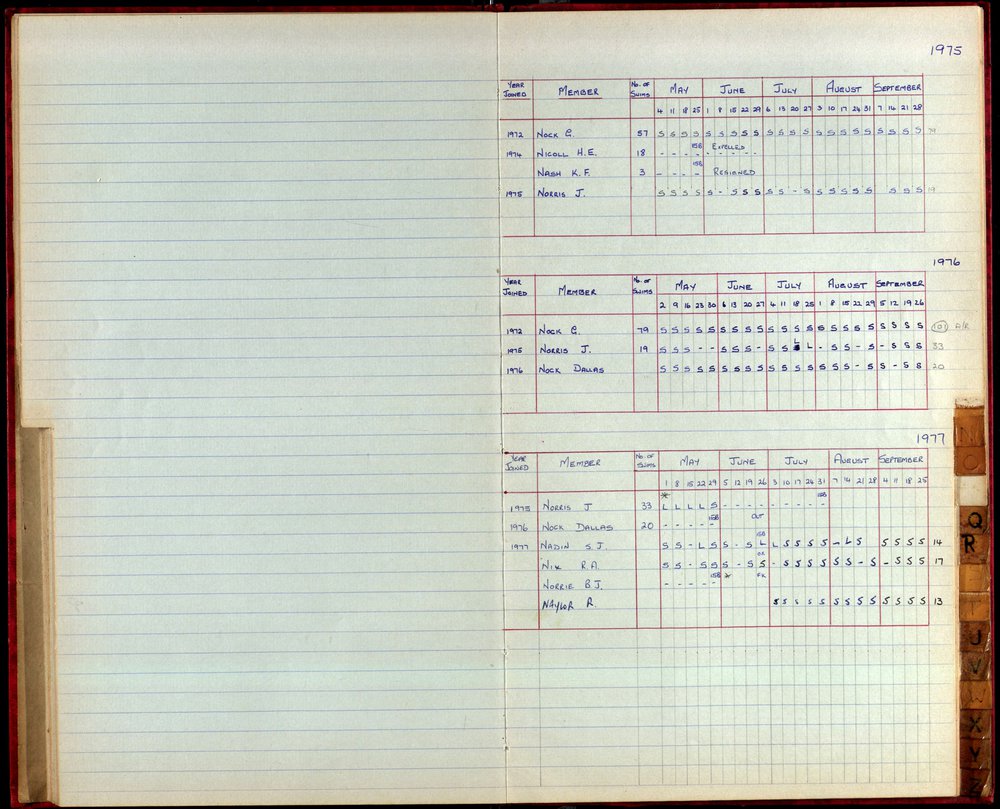 1975
YEAR JOINED MEMBER No. OF SWIMS MAY JUNE JULY AUGUST SEPTEMBER
4 11 18 25 1 8 15 22 29 6 13 20 27 3 10 17 24 31 7 14 21 28
1972 NOCK G. 57 S S S S S S S S S S S S S S S S S S S S S S 79
15B EXPELLED
1974 NICOLL H.E. 18 - - - - - - - - -
15B
NASH K.F. 3 - - - - RESIGNED
1975 NORRIS J. S S S S S - S S S S S - S S S S S S S S S 19
1976
YEAR JOINED MEMBER No. OF SWIMS MAY JUNE JULY AUGUST SEPTEMBER
2 9 16 23 30 6 13 20 27 4 11 18 25 1 8 15 22 29 5 12 19 26
1972 NOCK G. 79 S S S S S S S S S S S S S S S S S S S S S S 101 A/R
1975 NORRIS J. 19 S S S - - S S S - S S L L - S S - S - S S S 33
1976 NOCK DALLAS S S S S S S S S S S S S S S S S - S S - S S 20
1977
YEAR JOINED MEMBER No. OF SWIMS MAY JUNE JULY AUGUST SEPTEMBER
1 8 15 22 29 5 12 19 26 3 10 17 24 31 7 14 21 28 4 11 18 25
* 15B
1975 NORRIS J 33 L L L L S - - - - - - - - -
15B OUT
1976 NOCK DALLAS 20 - - - - -
15B
1977 NADIN S.J. S S - L S S - S L L S S S S - L S S S S S 14
OR
NIX R.A. S S - S S S - S S - S S S S S S - S - S S S 17
15B * FK
NORRIE B.J. - - - - -
NAYLOR R. S S S S S S S S S S S S S 13
N
O
Q
R
T
J
V
W
X
Y
Z